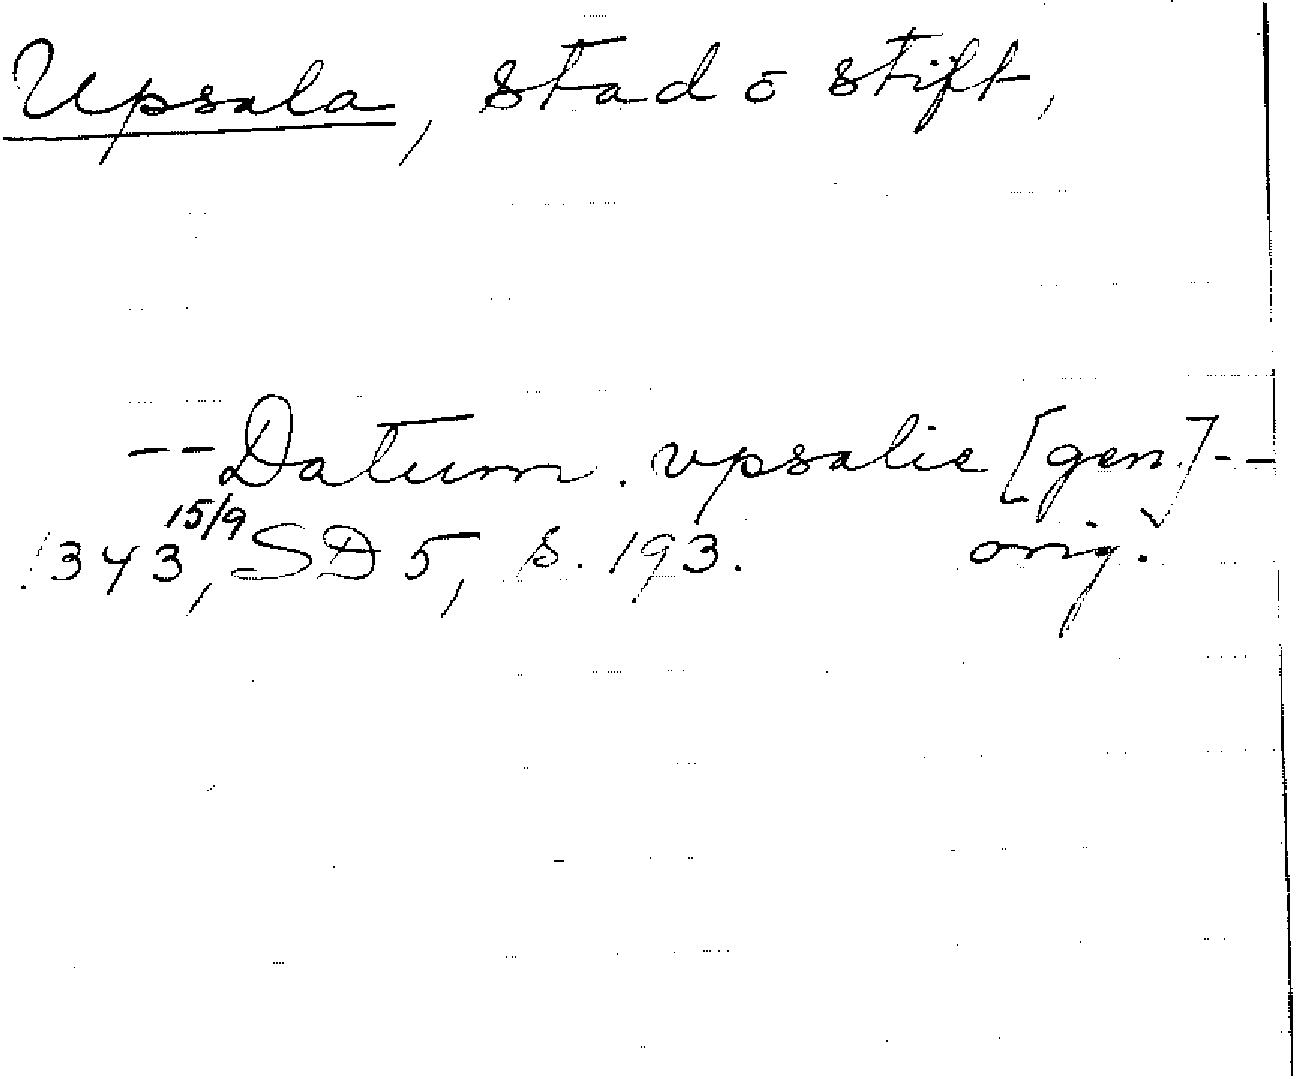 Upsala, stad o stift,
-- Datum. vpsalie [gen.] --
1343 15/9, SD 5, s. 193. orig.